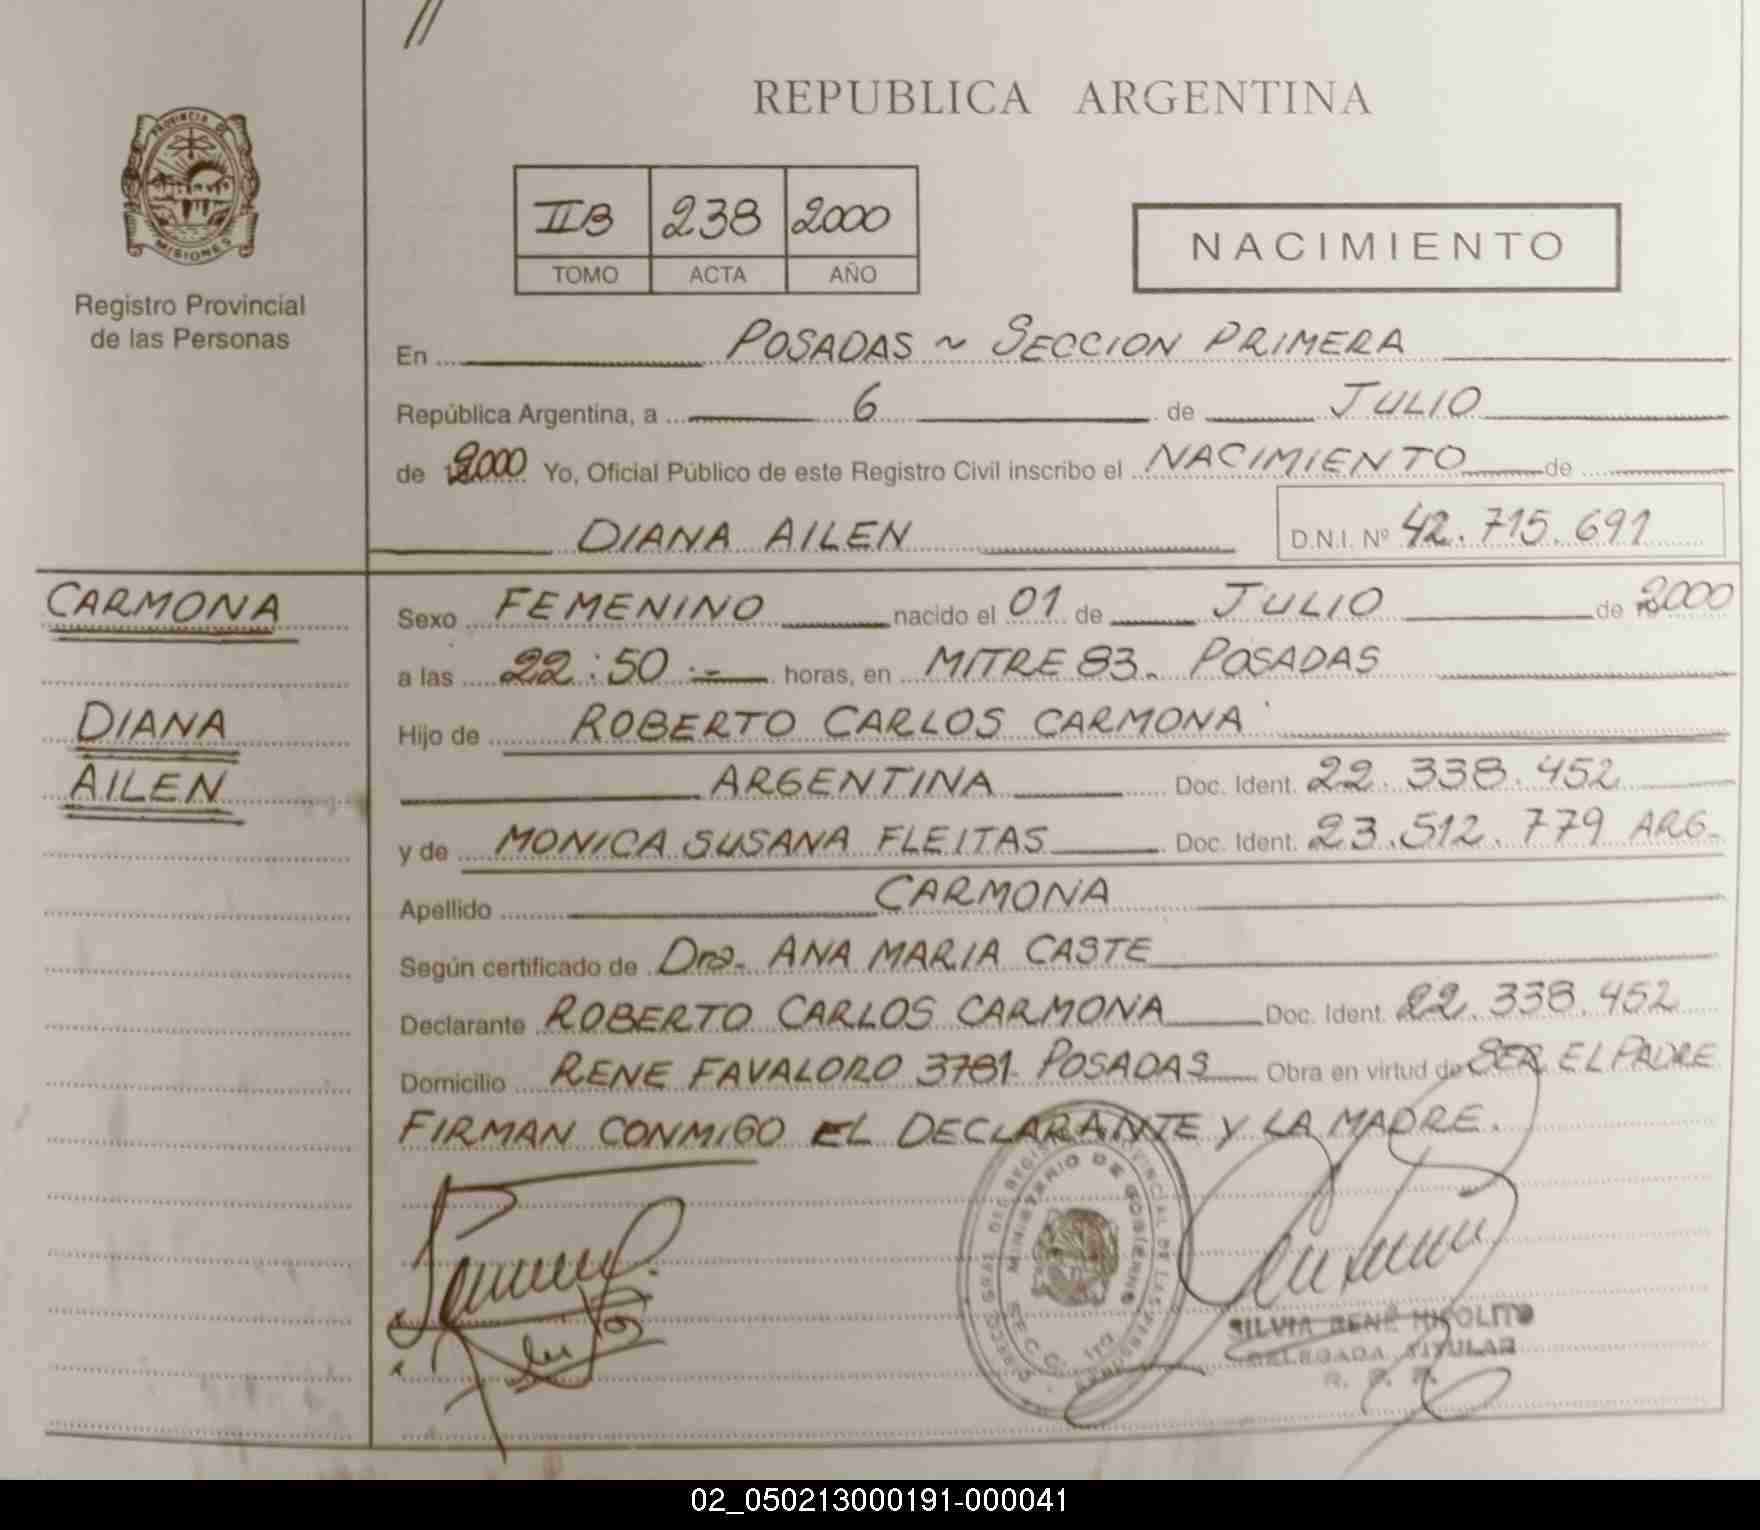 REPUBLICA ARGENTINA
PROVINCIA DE
MISIONES
Registro Provincial
de las Personas
IIB 238 2000
TOMO ACTA AÑO
NACIMIENTO
En POSADAS ~ SECCION PRIMERA
República Argentina, a 6 de JULIO
de 2000 Yo, Oficial Público de este Registro Civil inscribo el NACIMIENTO de
DIANA AILEN D.N.I. Nº 42.715.691
CARMONA
DIANA
AILEN
Sexo FEMENINO nacido el 01 de JULIO de 2000
a las 22:50 horas, en MITRE 83. POSADAS
Hijo de ROBERTO CARLOS CARMONA
ARGENTINA Doc. Ident. 22.338.452
y de MONICA SUSANA FLEITAS Doc. Ident. 23.512.779 ARG.
Apellido CARMONA
Según certificado de Dra. ANA MARIA CASTE
Declarante ROBERTO CARLOS CARMONA Doc. Ident. 22.338.452
Domicilio RENE FAVALORO 3781 POSADAS Obra en virtud de SER EL PADRE
FIRMAN CONMIGO EL DECLARANTE Y LA MADRE.
MINISTERIO DE GOBIERNO
SILVIA RENÉ HIPOLITO
DELEGADA TITULAR
02_050213000191-000041